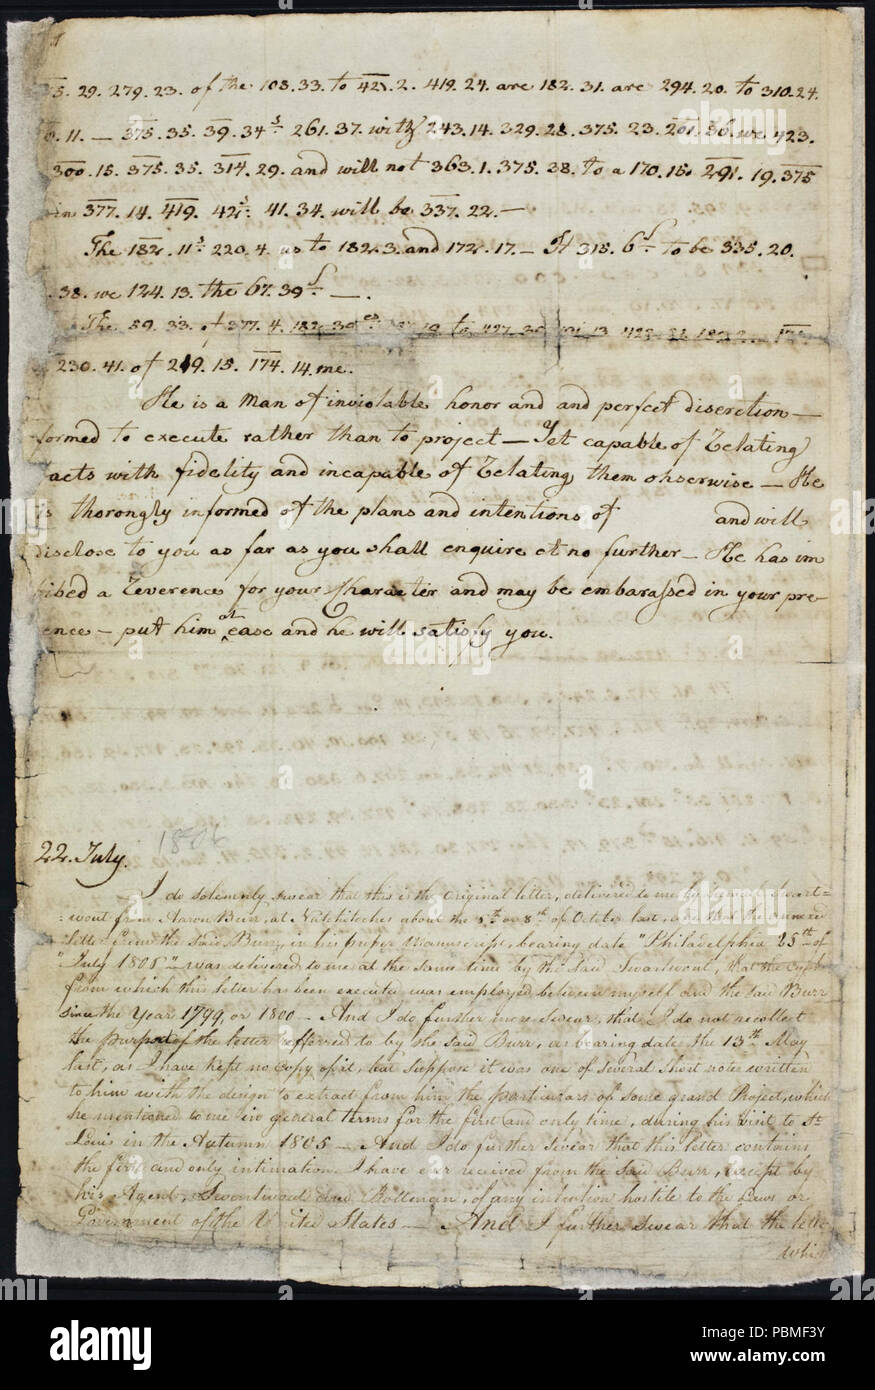 5. 29. 279. 23. of the 103. 33. to 421. 2. 419. 24. are 182. 31. are 294. 20. to 310. 24.
11. — 375. 35. 39. 34s 261. 37. with 243. 14. 329. 28. 375. 23. 201. 36. we 423.
300. 15. 375. 35. 314. 29. and will not 363. 1. 375. 38. to a 170. 15. 291. 19. 375
in 377. 14. 419. 42s. 41. 34. will be 337. 22. —
The 182. 11s 220. 4. us to 182. 3. and 172. 17. — It 315. 6s to be 335. 20.
38. we 124. 13. the 67. 39s —.
The 59. 33. of 377. 4. 182. 30 19 to 427. 13
230. 41. of 219. 15. 174. 14. me.
He is a Man of inviolable honor and and perfect discretion —
formed to execute rather than to project — Yet capable of relating
acts with fidelity and incapable of relating them ohserwise — He
is thorongly informed of the plans and intentions of and will
disclose to you as far as you shall enquire et no further — He has im
bibed a reverence for your Character and may be embarassed in your pre-
ence — put him at ease and he will satisfy you.
22. July. 1806
I do solemnly swear that this is the original letter, delivered to me by Samuel Swart-
:wout from Aaron Burr, at Natchitoches about the 5th or 8th of October last, and that the
letter from the said Burr, in his proper Manuscript, bearing date "Philadelphia 25th of
"July 1806" — was delivered to me at the same time by the said Swartwout, that the Cypher
from which this letter has been executed was employed between myself and the said Burr
since the Year 1799, or 1800 — And I do further more Swear, that I do not recollect
the purport of the letter refferred to by the said Burr, as bearing date the 13th May
last, as I have kept no Copy of it, but suppose it was one of several short notes written
to him with the design to extract from him the particulars of some grand Project, which
he mentioned to me in general terms for the first and only time, during his visit to St.
Louis in the Autumn 1805 — And I do further Swear that this letter contains
the first and only intimation I have ever received from the said Burr, except by
his Agents, Swartwout and Bollman, of any intention hostile to the Laws or
Government of the United States — And I further Swear that the letter
which
a
alamy
alamy
Image ID: PBMF3Y
www.alamy.com